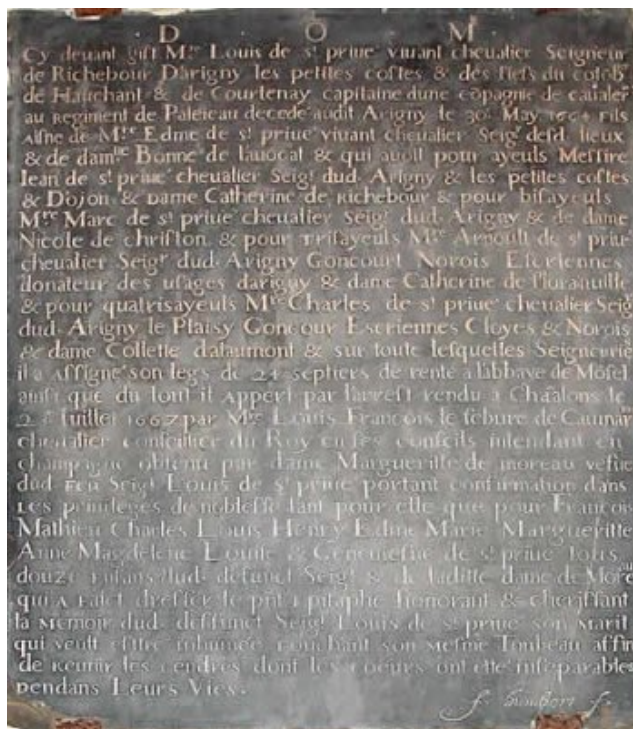 D O M
Cy deuant gist M.re Louis de st priue viuant cheualier Seigneur
de Richebour Darigny les petites costes & des fiefs du
de Hauchant & de Courtenay capitaine dune cōpagnie de caualer
au Regiment de Paleicau decedé audit Arigny le 30 May fils
Aisne de M.re Edme de st priue viuant cheualier Seigr desd. lieux
& de damlle Bonne de lauocat & qui auoit pour ayeuls Messire
Iean de st priue cheualier Seigr dud. Arigny & les petites costes
& Dojon & Dame Catherine de Richebour & pour bisayeuls
M.re Marc de st priue cheualier Seigr dud. Arigny & de dame
Nicole de christon & pour Trisayeuls M.re Arnoult de st priue
cheualier Seigr dud. Arigny Goncourt Norois Escriennes
donateur des usages darigny & dame Catherine de
& pour quatrisayeuls M.re Charles de st priue cheualier Seig
dud. Arigny le Plaisy Goncour Escriennes Cloyes & Norois
& dame Collette daſaumont & sur toute lesquelles Seigneurie
il a Assigné son legs de 24 septiers de rente a labbaye de Mosel
ainsi que du tout il Appert par larrest rendu a Chaalons le
Iuillet 1667 par M.re Louis François le febure de Caumar
cheualier conseiller du Roy en ses conseils intendant en
champagne obtenu par dame Margueritte de moreau vefue
dud. Feu Seigr Louis de st priue portant confirmation dans
Les priuileges de noblesse tant pour elle que pour François
Mathieu Charles Louis Henry Edme Marie Margueritte
Anne Magdelene Louise & Geneuiefue de st priue tous
douze Enfans dud. defunct Seigr & de laditte dame de More
qui A Faict dresser le pñt Epitaphe honorant & cherissant
la Memoir dud. deffunct Seigr Louis de st priue son Marit
qui veult estre inhumée touchant son Mesme Tonbeau affin
de Reunir les cendres dont les coeurs ont esté inseparables
pendans Leurs Vies.